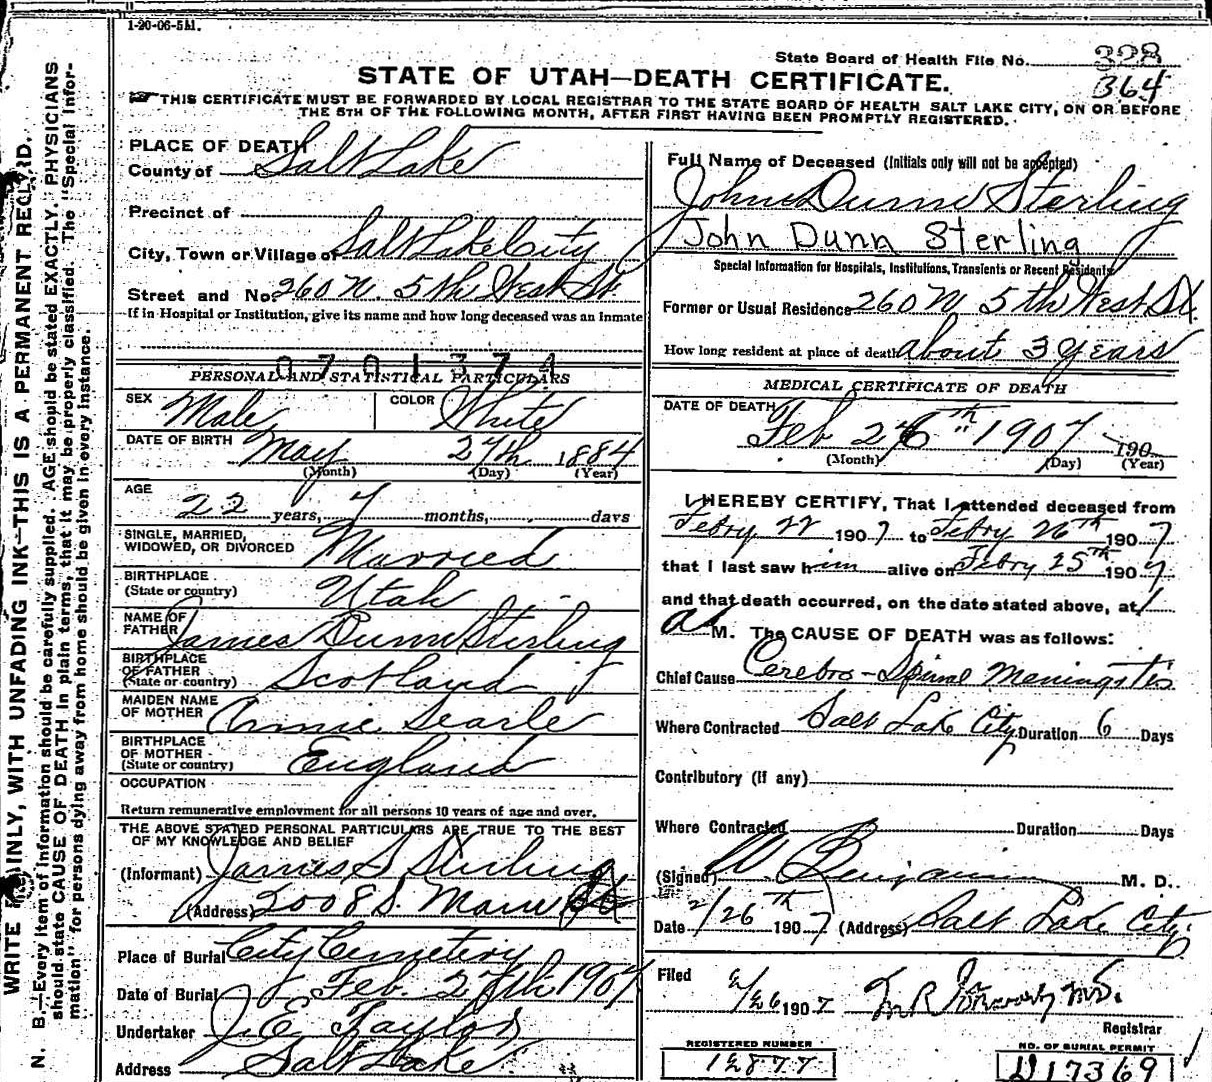 1-20-06-5M.
State Board of Health File No. 328
364
STATE OF UTAH—DEATH CERTIFICATE.
THIS CERTIFICATE MUST BE FORWARDED BY LOCAL REGISTRAR TO THE STATE BOARD OF HEALTH SALT LAKE CITY, ON OR BEFORE
THE 5TH OF THE FOLLOWING MONTH, AFTER FIRST HAVING BEEN PROMPTLY REGISTERED.
WRITE PLAINLY, WITH UNFADING INK—THIS IS A PERMANENT RECORD.
N. B.—Every item of information should be carefully supplied. AGE should be stated EXACTLY. PHYSICIANS
should state CAUSE OF DEATH in plain terms, that it may be properly classified. The "Special Infor-
mation" for persons dying away from home should be given in every instance.
PLACE OF DEATH
County of Salt Lake
Precinct of
City, Town or Village of Salt Lake City
Street and No. 260 N. 5th West St.
If in Hospital or Institution, give its name and how long deceased was an Inmate
0701374
PERSONAL AND STATISTICAL PARTICULARS
SEX Male COLOR White
DATE OF BIRTH May 27th 1884
(Month) (Day) (Year)
AGE
22 years, 7 months, days
SINGLE, MARRIED,
WIDOWED, OR DIVORCED Married
BIRTHPLACE
(State or country) Utah
NAME OF
FATHER James Dunn Stirling
BIRTHPLACE
OF FATHER
(State or country) Scotland
MAIDEN NAME
OF MOTHER Annie Searle
BIRTHPLACE
OF MOTHER
(State or country) England
OCCUPATION
Return remunerative employment for all persons 10 years of age and over.
THE ABOVE STATED PERSONAL PARTICULARS ARE TRUE TO THE BEST
OF MY KNOWLEDGE AND BELIEF
(Informant) James S Stirling
(Address) 2008 S. Main St
Place of Burial City Cemetery
Date of Burial Feb. 27th 1907
Undertaker J. E. Taylor
Address Salt Lake
Full Name of Deceased (Initials only will not be accepted)
John Dunn Sterling
John Dunn Sterling
Special Information for Hospitals, Institutions, Transients or Recent Residents
Former or Usual Residence 260 N 5th West St.
How long resident at place of death about 3 years
MEDICAL CERTIFICATE OF DEATH
DATE OF DEATH
Feb 26th 1907 190
(Month) (Day) (Year)
I HEREBY CERTIFY, That I attended deceased from
Febry 22 1907 to Febry 26th 1907
that I last saw him alive on Febry 25th 1907
and that death occurred, on the date stated above, at 1
a M. The CAUSE OF DEATH was as follows:
Chief Cause Cerebro-Spinal Meningitis
Where Contracted Salt Lake City Duration 6 Days
Contributory (if any)
Where Contracted Duration Days
(Signed) W. Benjamin M. D.
Date 2/26th 1907 (Address) Salt Lake City
Filed 2/26 1907 M.D.
Registrar
REGISTERED NUMBER
12877
NO. OF BURIAL PERMIT
D17369